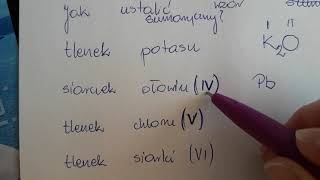 jak ustalić wzór
sumaryczny?
I II
tlenek potasu K₂O
siarczek ołowiu (IV) Pb
tlenek chloru (V)
tlenek siarki (VI)